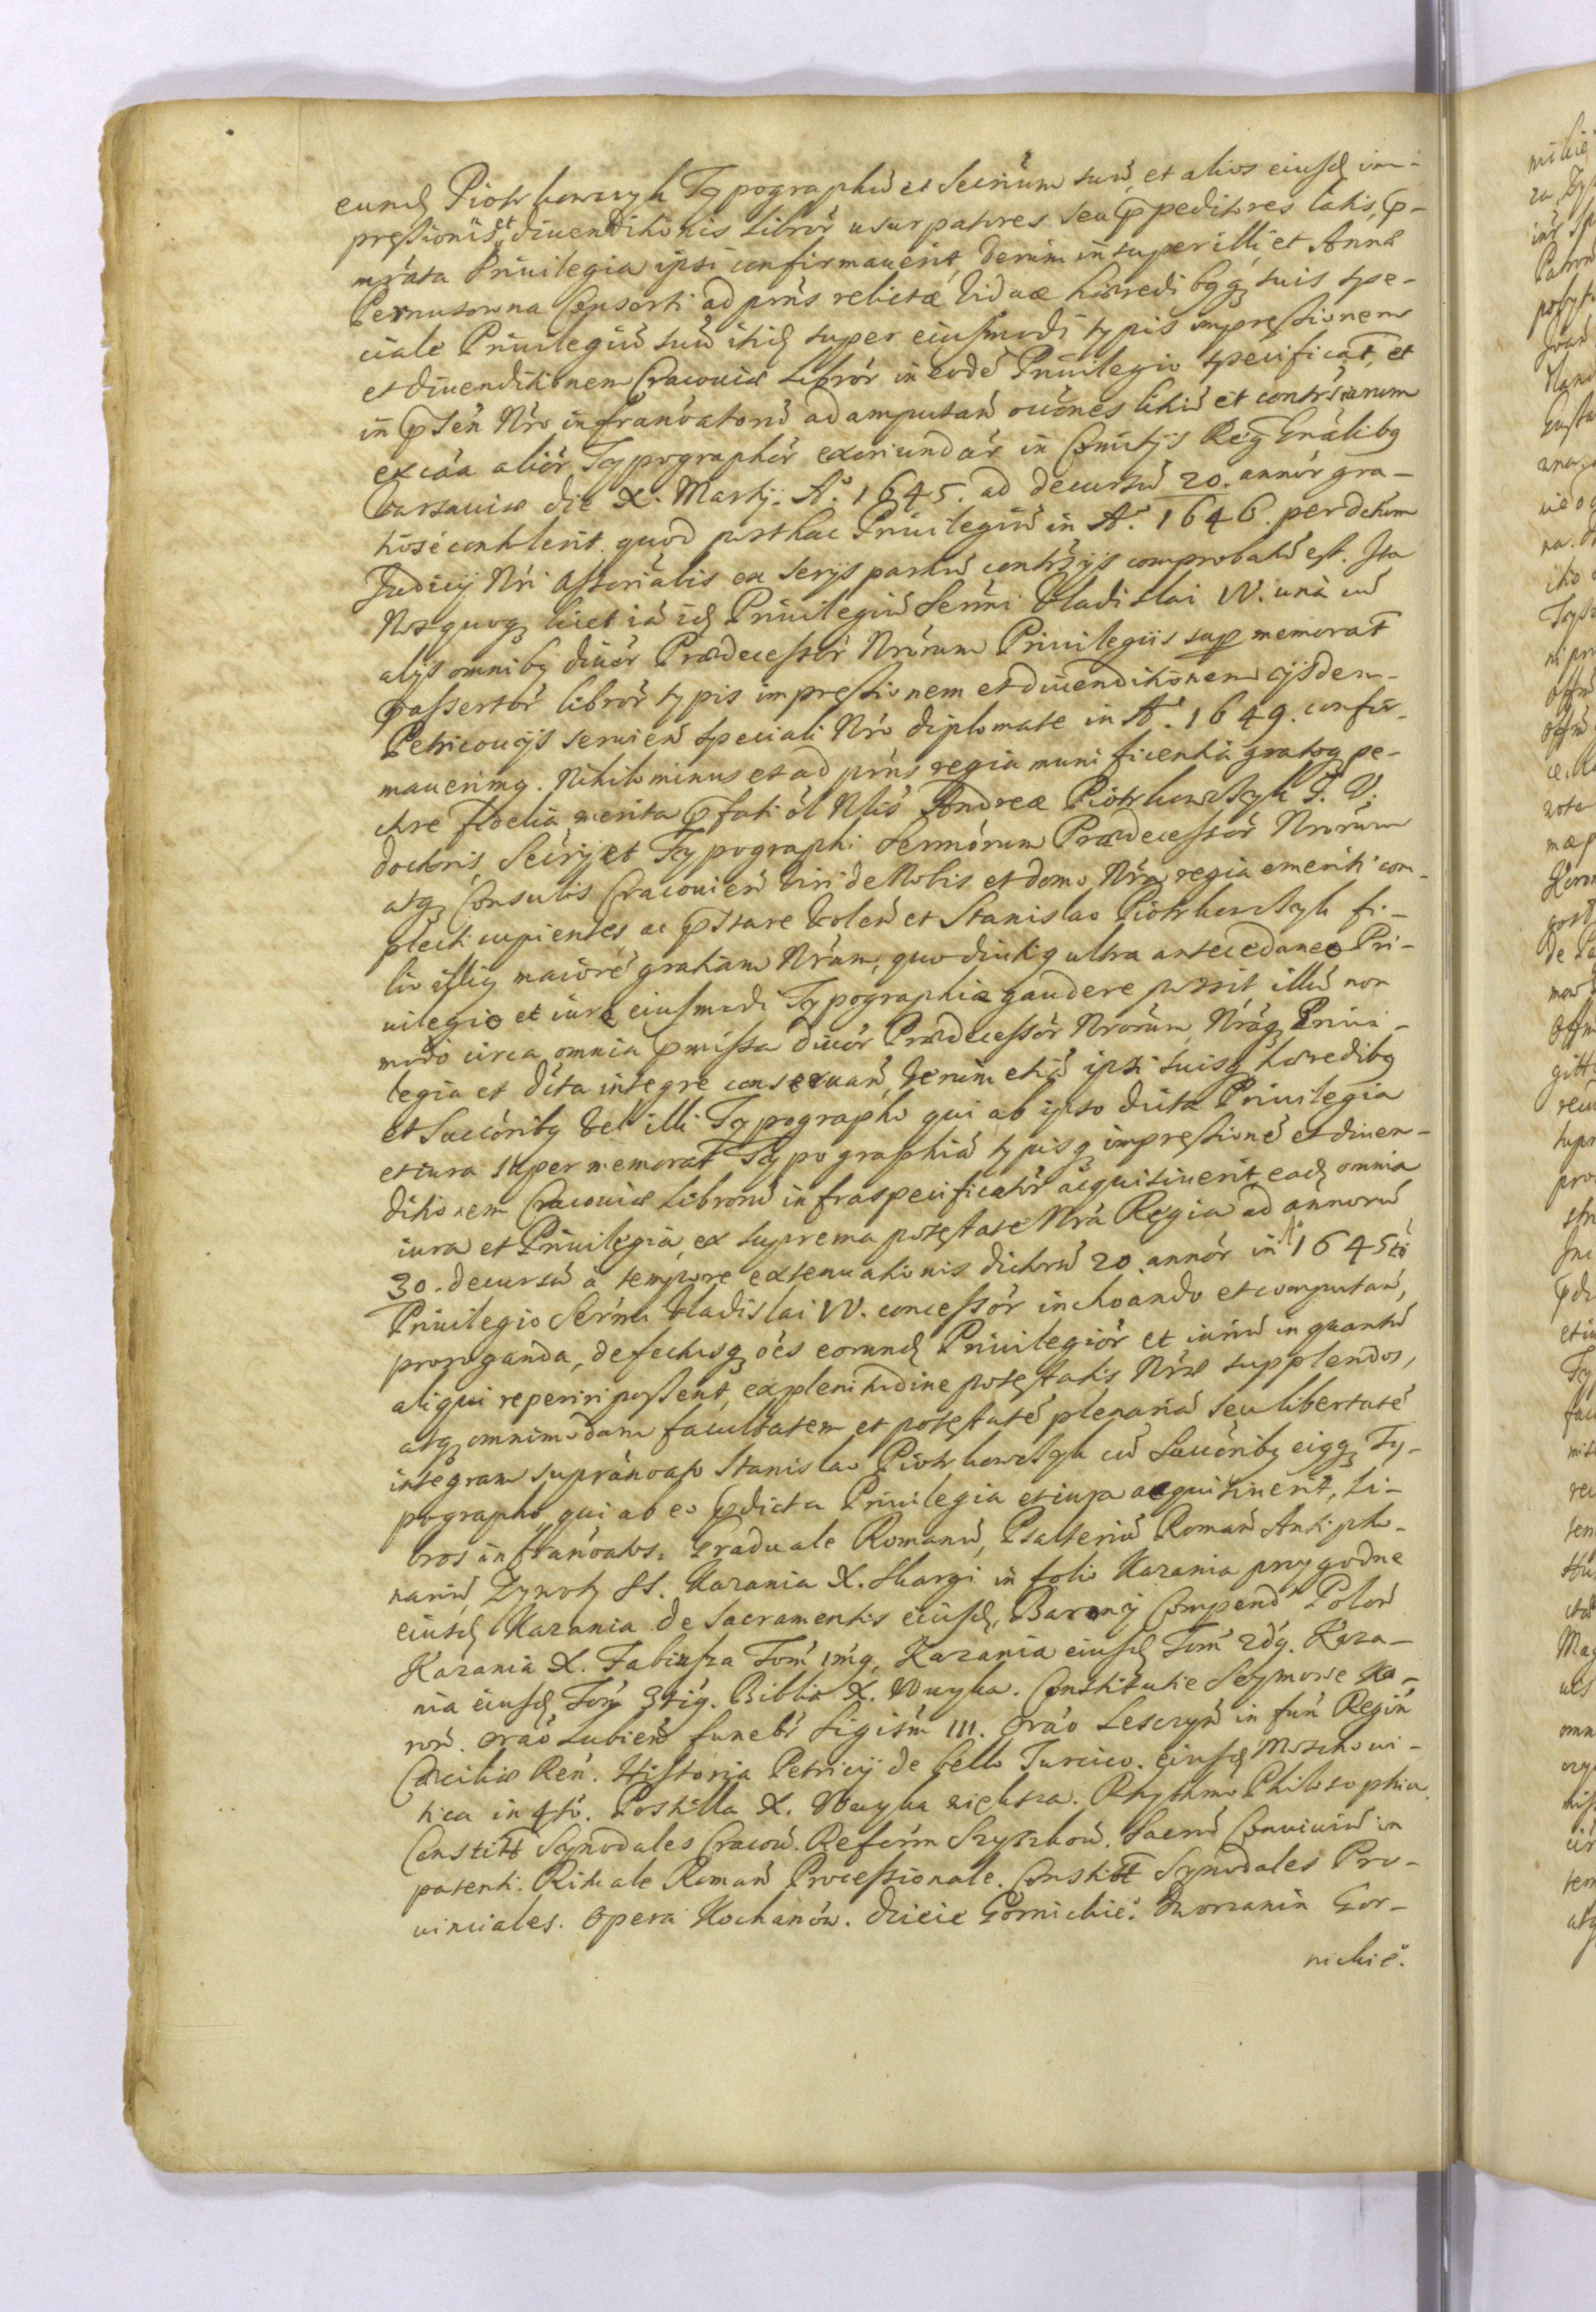 eund Piotrkowczyk Typographū et Secrīum suū, et alios eiusd im-
pressionis et diuenditionis librōr usurpatores seu ꝑpeditores latis, p-
mrāta Priuilegia ipsi confirmauerit, Verum insuper illi, et Annæ
Pernusowna Consorti ad prñs relictæ Viduæ hæredibqꝫ suis spe-
ciale Priuilegiū suū itid super eiusmodi typis impressionem
et diuenditionem Cracouiæ librōr in eodē Priuilegio specificat, et
in pñsen Nro infranōatorū ad amputañ occōnes litiū et contrsiarum
ex cāa aliōr Typographōr exoriundār in Comitijs Reg Gnālibq
Varsauiæ die X. Martij. Aº. 1645. ad decursū 20. annōr gra-
tiose contulerit. quod posthac Priuilegiū in Aº. 1646. per dctum
Judicij Nri Assoriālis ex serijs partiū contrijs comprobatū est. Ita
Nos quoqꝫ licet iā id Priuilegiū Sermi Vladislai IV. unà cū
alijs omnibq diuōr Prædecessōr Nrōrum Priuilegiis sup memorat
passertōr librōr typis impressionem et diuenditionem ijsdem
Petricouijs seruien speciali Nro diplomate in Aº. 1649. confir-
mauerimq. Nihilominus et ad prñs regia munificentia gratoqꝫ pe-
ctore fidelia merita pfati ol Nlis Andreæ Piotrkowczyk I. V.
doctoris, Secrij et Typographi Sermōrum Prædecessōr Nrōrum
atqꝫ Consulis Cracouień Viri de Nobis et domo Nra regia emeriti com-
plecti cupientes ac pstare Voleń et Stanislao Piotrkowczyk fi-
lio illiq maiorē gratiam Nram, quo diutiq ultra antecedaneo Pri-
uilegio et iure eiusmodi Typographiæ gaudere possit illū non
modo circa omnia pmissa diuōr Prædecessōr Nrōrum, Nrāqꝫ Priui-
legia et dcta integre conseruań, Verum etiā ipsi suisqꝫ hæredibq
et Succōribq Vel illi Typographo qui ab ipso dicta Priuilegia
et iura supermemorat Typographiā typisqꝫ impressionē et diuen-
ditionem Cracouiæ librorū infraspecificatōr acquisiuerit, ead omnia
iura et Priuilegia, ex suprema potestate Nra Regia ad annorū
30. decursū à tempore extenuationis dictorū 20. annōr in Aº 1645to
Priuilegio Sermi Vladislai IV. concessōr inchoando et computań,
proroganda, defectusqꝫ oēs eorund Priuilegiōr et iuriū in quantū
aliqui reperiri possent, ex plenitudine potestatis Nræ supplendos,
atqꝫ omnimodam facultatem et potestatē plenariā seu libertatē
integram supranōato Stanislao Piotrkowczyk cū Succōribq eiqꝫ Ty-
pographo, qui ab eo pdicta Priuilegia et iura acquisiuerit, Li-
bros infranōatos. Graduale Romanū, Psalteriū Romań Antipho-
nariū, Zywoty SS. Kazania X. Skargi in folio Kazania przygodne
eiusd Kazania de Sacramentis eiusd, Baronij Compend Poloń
Kazania X. Fabiusza Tom 1mq, Kazania eiusd Tom 2dq. Kaza-
nia eiusd Tom 3tiq. Biblia X. Wuyka. Constitutie Seymowe Ko-
ron. Orāo Lubień funebr Sigism III. Orāo Lesczyń in fun Regin
Cæciliæ Ren. Historia Petricij de bello Turcico. eiusd Moschoui-
tica in 4to. Postilla X. Wuyka większa. Rhythmo Philosophia.
Constitt Synodales Cracou. Reform Szyszkow. Sacrū Conuiuiū in
patenti. Rituale Romań Processionale. Constitt Synodales Pro-
uinciales. Opera Kochanow. Dzieie Gornickie. Dworzanin Gor-
nickie.